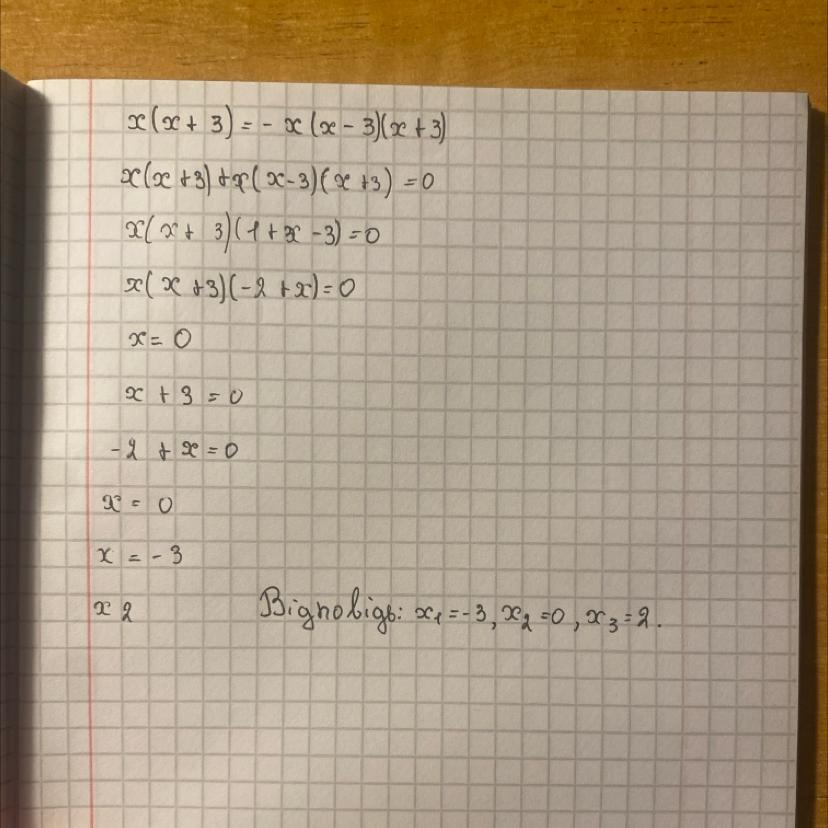 x(x + 3) = - x(x - 3)(x + 3)
x(x + 3) + x(x - 3)(x + 3) = 0
x(x + 3)(1 + x - 3) = 0
x(x + 3)(-2 + x) = 0
x = 0
x + 3 = 0
-2 + x = 0
x = 0
x = -3
x 2
Відповідь: x₁ = -3, x₂ = 0, x₃ = 2.